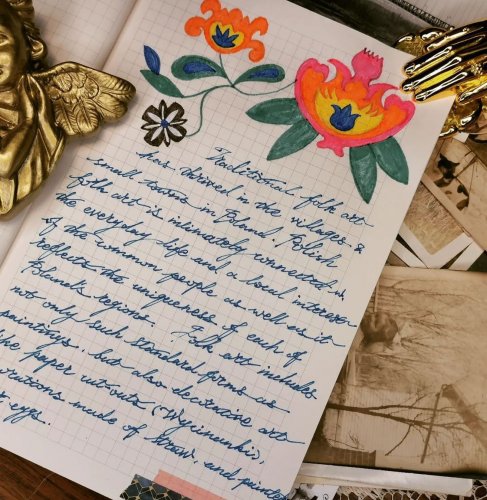 Traditional folk arts
has thrived in the villages &
small towns in Poland. Polish
folk art is intimately connected w
the everyday life and a local interest
of the common people as well as it
reflects the uniqueness of each of
Poland's regions. Folk art includes
not only such standard forms as
paintings, but also decorative arts
like paper cutouts (Wycinanki),
made of straw, and painted
eggs.